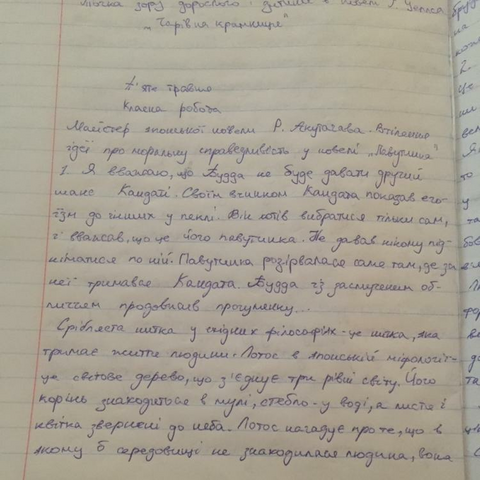 точка зору дорослого і дитини в новелі Г. Уеллса
„Чарівна крамниця"
П'яте травня
Класна робота
Майстер японської новели Р. Акутагава. Втілення
ідеї про моральну справедливість у новелі „Павутинка"
1. Я вважаю, що Будда не буде давати другий
шанс Кандаті. Своїм вчинком Кандата показав его-
їзм до інших у пеклі. Він хотів вибратися тільки сам,
і вважав, що це його павутинка. Не давав нікому під-
німатися по ній. Павутинка розірвалася саме там, де за
неї тримався Кандата. Будда із засмученим об-
личчям продовжив прогулянку...
Срібляста нитка у східних філософіях - це нитка, яка
тримає життя людини. Лотос в японській міфології-
це світове дерево, що з'єднує три рівні світу. Його
корінь знаходиться в мулі, стебло - у воді, а листя і
квітка звернені до неба. Лотос нагадує про те, що в
якому б середовищі не знаходилася людина, вона